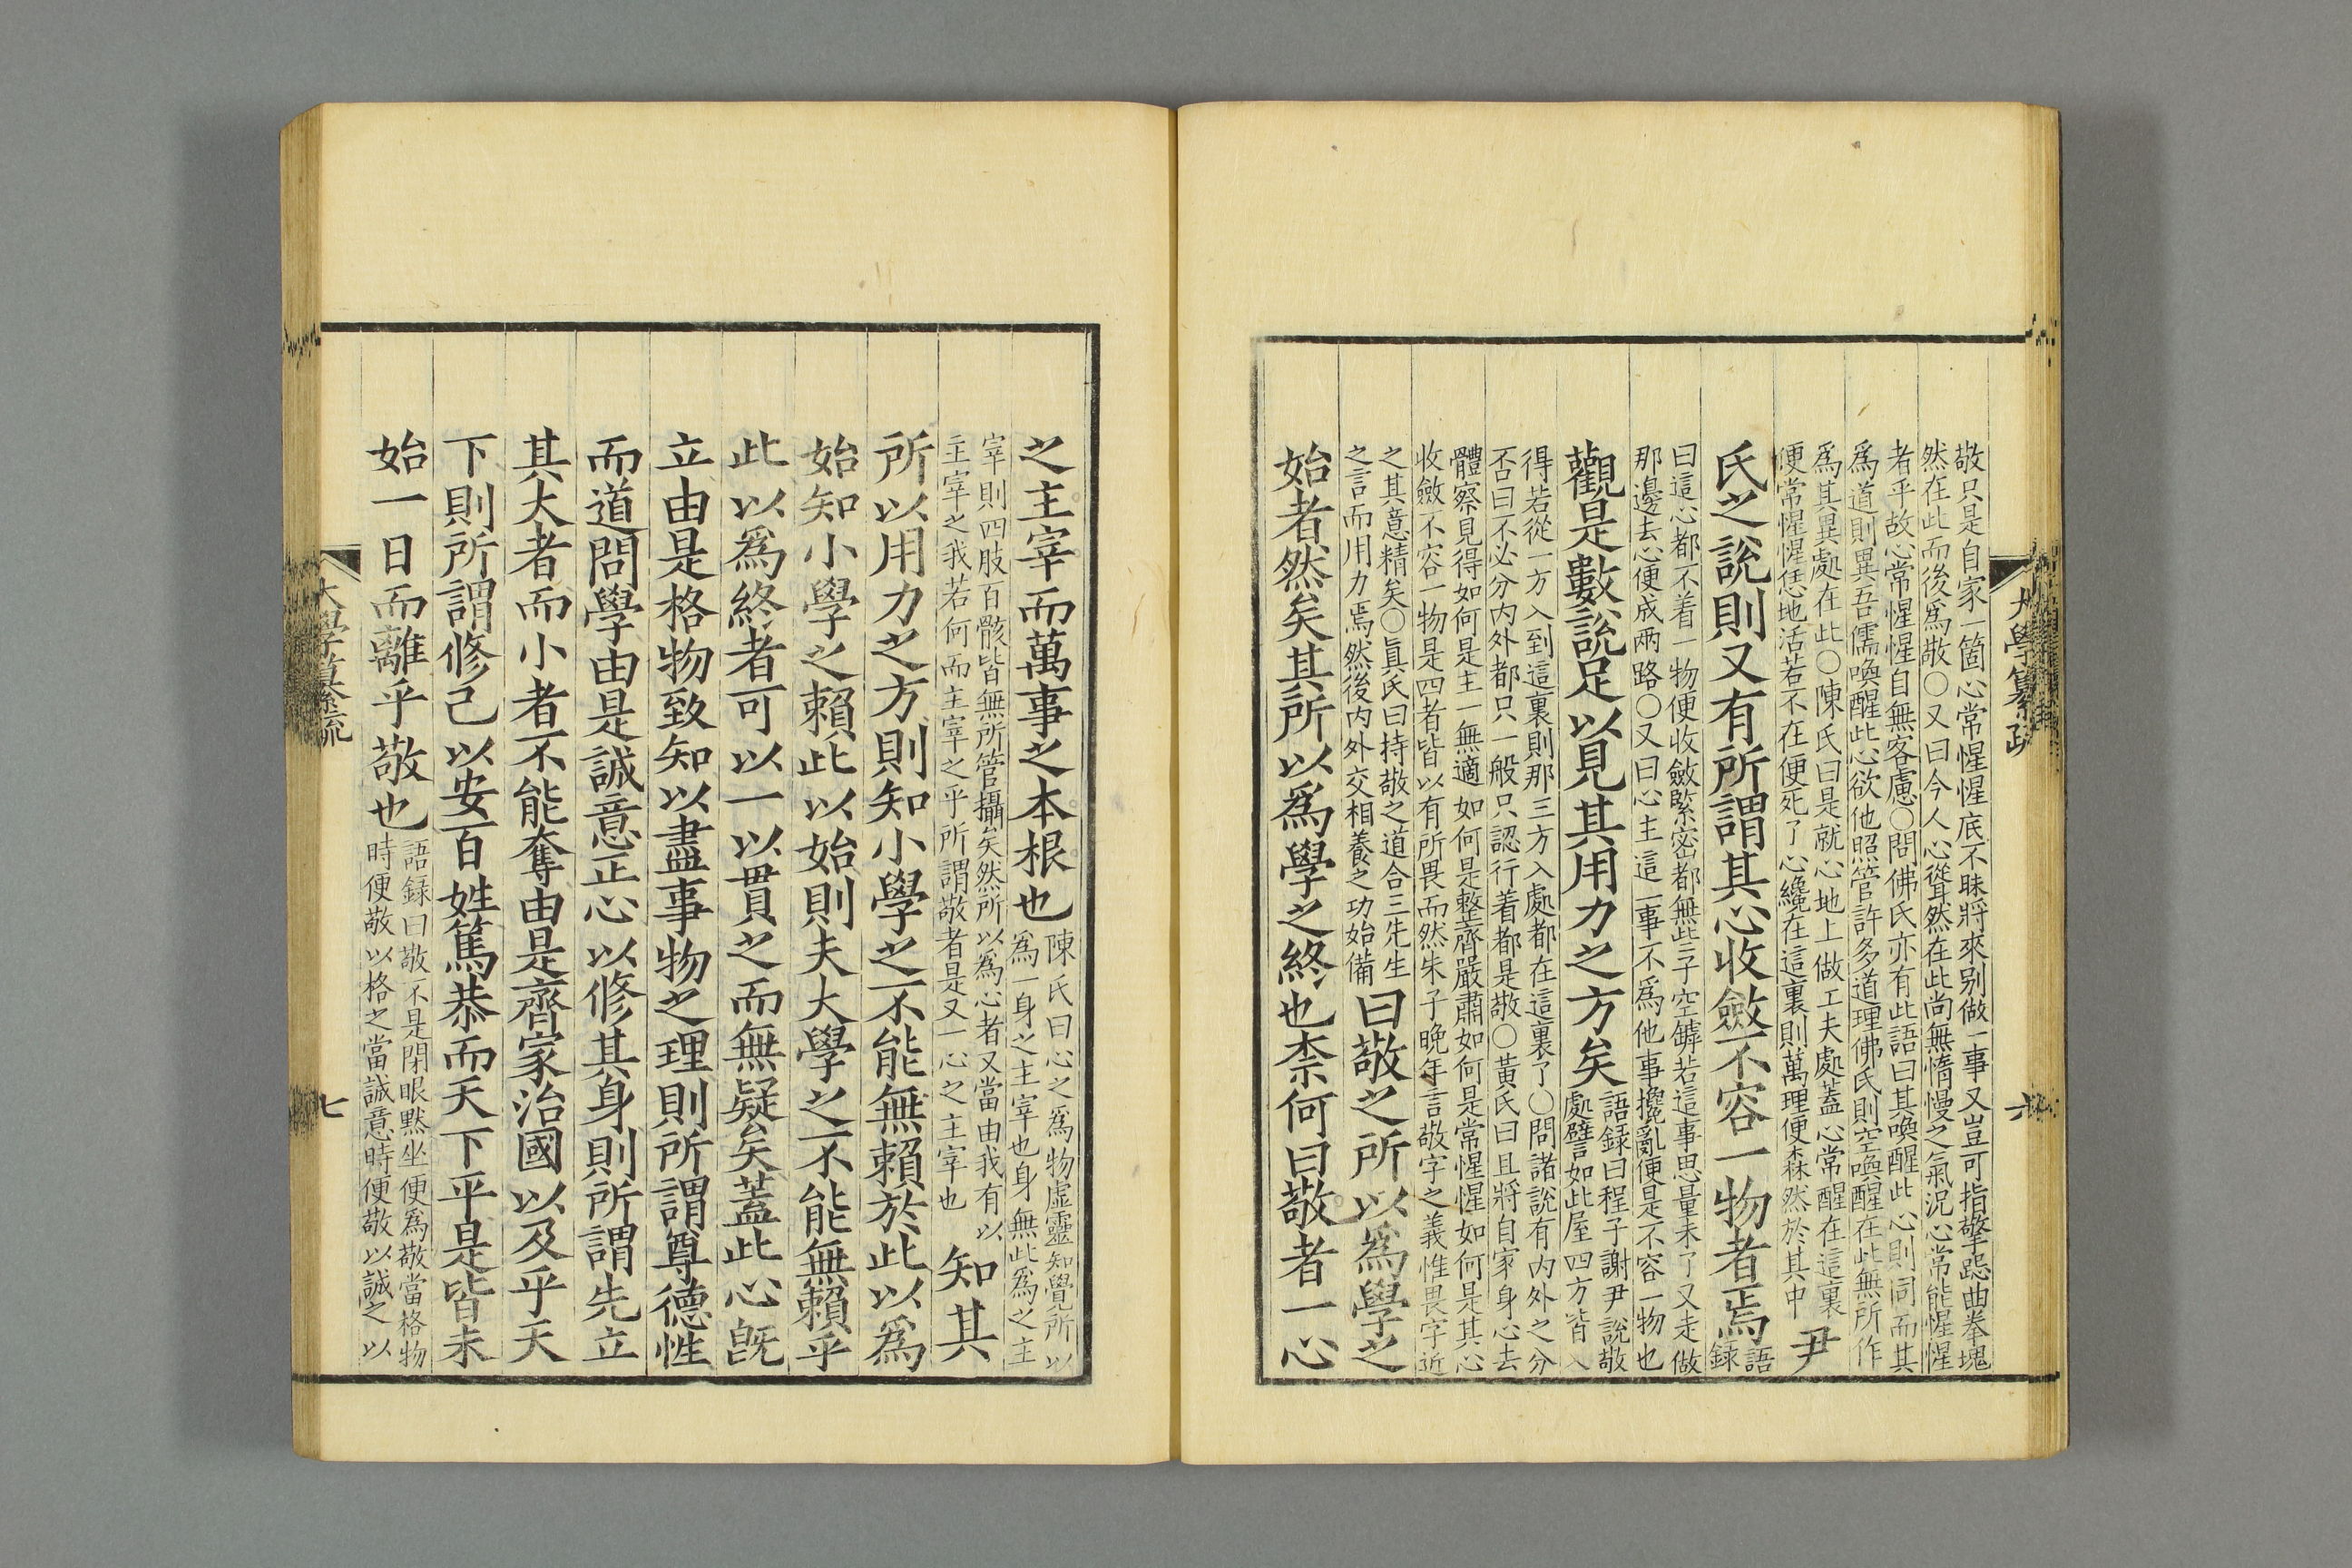 大學纂疏
六
敬只是自家一箇心常惺惺底不昧將來别做一事又豈可指擎跽曲拳塊
然在此而後爲敬○又曰今人心聳然在此尚無惰慢之氣況心常能惺惺
者乎故心常惺惺自無客慮○問佛氏亦有此語曰其喚醒此心則同而其
爲道則異吾儒喚醒此心欲他照管許多道理佛氏則空喚醒在此無所作
爲其異處在此○陳氏曰是就心地上做工夫處蓋心常醒在這裏
便常惺惺恁地活若不在便死了心纔在這裏則萬理便森然於其中
尹
氏之說則又有所謂其心收斂不容一物者焉
語
録
曰這心都不着一物便收斂緊密都無些子空罅若這事思量未了又走做
那邊去心便成兩路○又曰心主這一事不爲他事攙亂便是不容一物也
觀是數說足以見其用力之方矣
語録曰程子謝尹說敬
處譬如此屋四方皆入
得若從一方入到這裏則那三方入處都在這裏了○問諸說有内外之分
否曰不必分内外都只一般只認行着都是敬○黃氏曰且將自家身心去
體察見得如何是主一無適如何是整齊嚴肅如何是常惺惺如何是其心
收斂不容一物是四者皆以有所畏而然朱子晚年言敬字之義惟畏字近
之其意精矣○眞氏曰持敬之道合三先生
之言而用力焉然後内外交相養之功始備
曰敬之所以爲學之
始者然矣其所以爲學之終也柰何曰敬者一心
之主宰而萬事之本根也
陳氏曰心之爲物虛靈知覺所以
爲一身之主宰也身無此爲之主
宰則四肢百骸皆無所管攝矣然所以爲心者又當由我有以
主宰之我若何而主宰之乎所謂敬者是又一心之主宰也
知其
所以用力之方則知小學之不能無賴於此以爲
始知小學之賴此以始則夫大學之不能無賴乎
此以爲終者可以一以貫之而無疑矣蓋此心旣
立由是格物致知以盡事物之理則所謂尊德性
而道問學由是誠意正心以修其身則所謂先立
其大者而小者不能奪由是齊家治國以及乎天
下則所謂修己以安百姓篤恭而天下平是皆未
始一日而離乎敬也
語録曰敬不是閉眼默坐便爲敬當格物
時便敬以格之當誠意時便敬以誠之以
大學纂疏
七